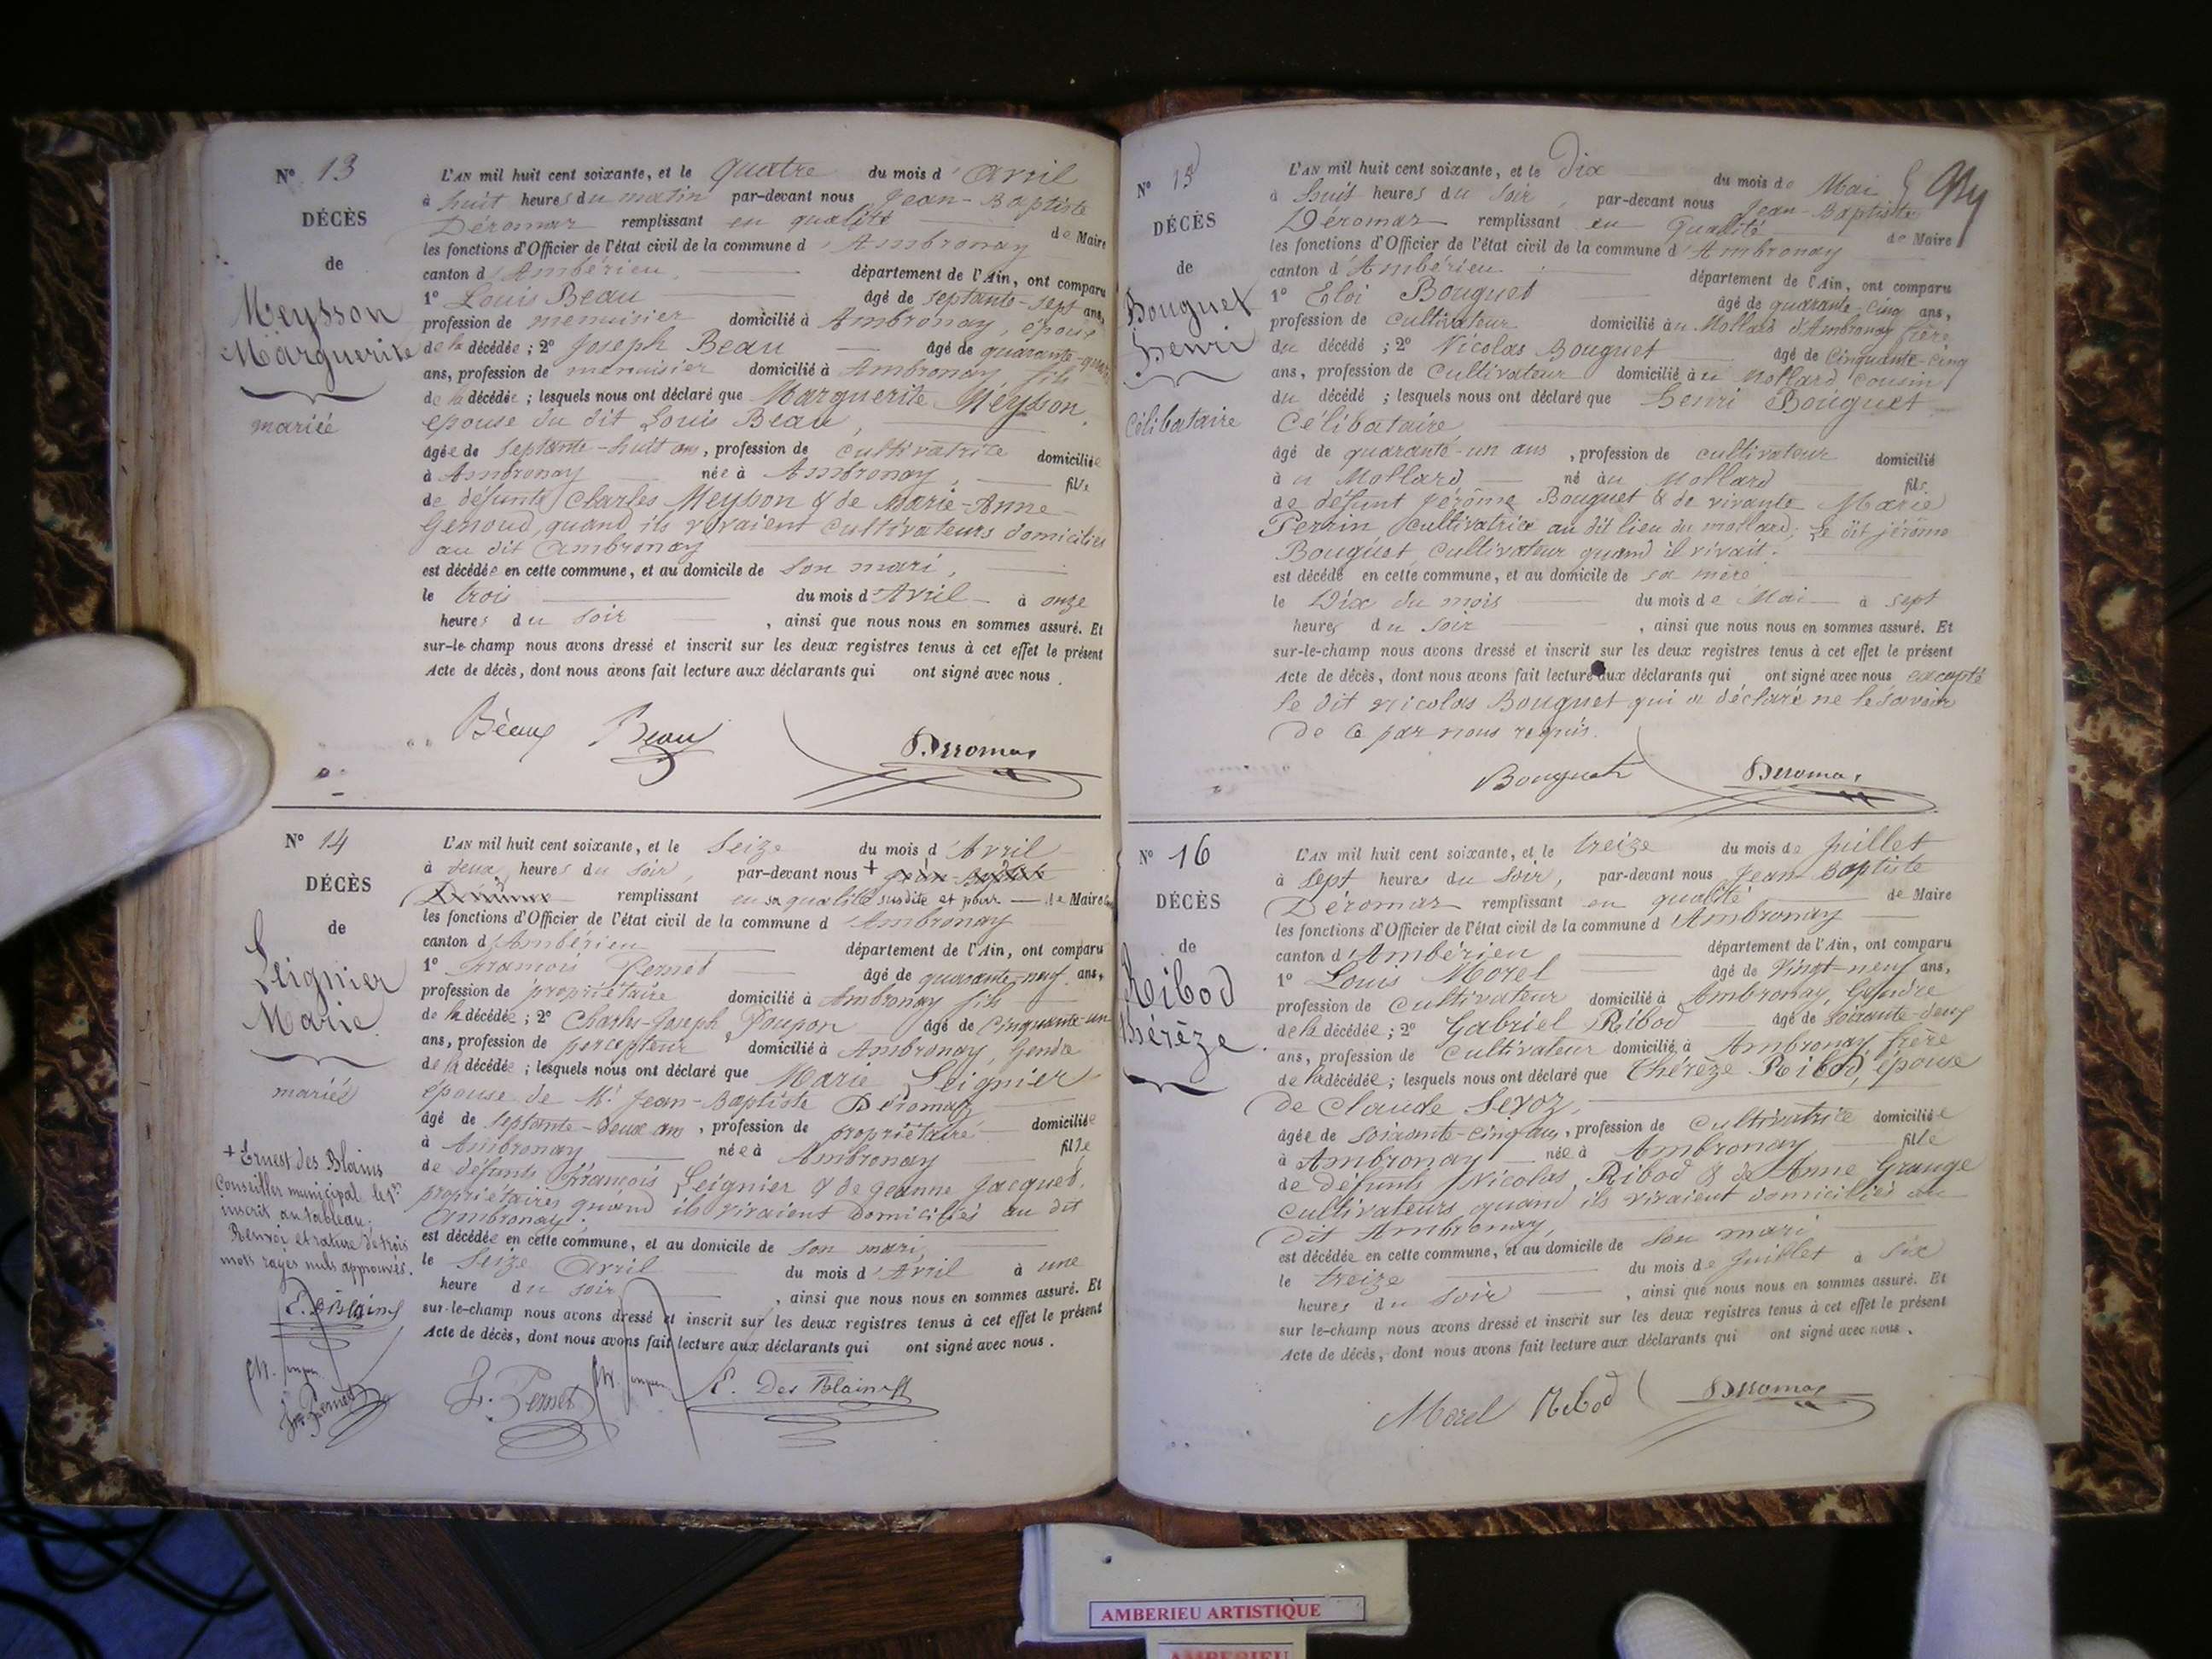 N° 13
DÉCÈS
de
Meysson
Marguerite
mariée
L'AN mil huit cent soixante, et le quatre du mois d'Avril
à huit heures du matin par-devant nous Jean-Baptiste
Déromas remplissant en qualité de Maire
les fonctions d'Officier de l'état civil de la commune d'Ambronay
canton d'Ambérieu, département de l'Ain, ont comparu
1° Louis Beau âgé de septante-sept ans,
profession de menuisier domicilié à Ambronay, époux
de la décédée ; 2° Joseph Beau âgé de quarante-
ans, profession de menuisier domicilié à Ambronay fils
de la décédée ; lesquels nous ont déclaré que Marguerite Meysson,
épouse du dit Louis Beau,
âgée de septante-huit ans, profession de cultivatrice domiciliée
à Ambronay née à Ambronay, fille
de défunts Charles Meysson & de Marie-Anne
Genoud, quand ils vivaient cultivateurs domiciliés
au dit Ambronay
est décédée en cette commune, et au domicile de son mari,
le trois du mois d'Avril à onze
heures du soir, ainsi que nous nous en sommes assuré. Et
sur-le-champ nous avons dressé et inscrit sur les deux registres tenus à cet effet le présent
Acte de décès, dont nous avons fait lecture aux déclarants qui ont signé avec nous.
Béaux Beau Deromas
N° 14
DÉCÈS
de
Seignier
Marie
mariée
+ Ernest des Blains
Conseiller municipal le 1er
inscrit au tableau.
Renvoi et rature de trois
mots rayés nuls approuvés.
E. desBlains
Fr. Pernet
L'AN mil huit cent soixante, et le seize du mois d'Avril
à deux heures du soir, par-devant nous + Jean-Baptiste
Déromas remplissant en sa qualité susdite et pour le Maire
les fonctions d'Officier de l'état civil de la commune d'Ambronay
canton d'Ambérieu département de l'Ain, ont comparu
1° François Pernet âgé de quarante-neuf ans,
profession de propriétaire domicilié à Ambronay fils
de la décédée ; 2° Charles-Joseph Poupon âgé de cinquante-un
ans, profession de percepteur domicilié à Ambronay, Gendre
de la décédée ; lesquels nous ont déclaré que Marie Seignier
épouse de Mr. Jean-Baptiste Déromas
âgé de septante-deux ans, profession de propriétaire domiciliée
à Ambronay née à Ambronay fille
de défunts François Seignier & de Jeanne Jacquet,
propriétaires quand ils vivaient domiciliés au dit
Ambronay.
est décédée en cette commune, et au domicile de son mari,
le seize Avril du mois d'Avril à une
heure du soir, ainsi que nous nous en sommes assuré. Et
sur-le-champ nous avons dressé et inscrit sur les deux registres tenus à cet effet le présent
Acte de décès, dont nous avons fait lecture aux déclarants qui ont signé avec nous.
F. Pernet E. Des Blains
N° 15
DÉCÈS
de
Bouguet
Henri
Célibataire
L'AN mil huit cent soixante, et le Dix du mois de Mai
à huit heures du soir, par-devant nous Jean-Baptiste
Déromas remplissant en qualité de Maire
les fonctions d'Officier de l'état civil de la commune d'Ambronay
canton d'Ambérieu département de l'Ain, ont comparu
1° Eloi Bouguet âgé de quarante-cinq ans,
profession de cultivateur domicilié au Mollard d'Ambronay frère
du décédé ; 2° Nicolas Bouguet âgé de cinquante-cinq
ans, profession de cultivateur domicilié au Mollard cousin
du décédé ; lesquels nous ont déclaré que Henri Bouguet
Célibataire
âgé de quarante-un ans, profession de cultivateur domicilié
au Mollard né au Mollard fils
de défunt Jérôme Bouguet & de vivante Marie
Perrin cultivatrice au dit lieu du mollard; le dit jérôme
Bouguet, cultivateur quand il vivait.
est décédé en cette commune, et au domicile de sa mère
le Dix du mois du mois de Mai à sept
heures du soir, ainsi que nous nous en sommes assuré. Et
sur-le-champ nous avons dressé et inscrit sur les deux registres tenus à cet effet le présent
Acte de décès, dont nous avons fait lecture aux déclarants qui ont signé avec nous excepté
le dit Nicolas Bouguet qui a déclaré ne le savoir
de ce par nous requis.
Bouguet Deromas
N° 16
DÉCÈS
de
Ribod
Thérèze
L'AN mil huit cent soixante, et le treize du mois de Juillet
à sept heures du soir, par-devant nous Jean Baptiste
Déromas remplissant en qualité de Maire
les fonctions d'Officier de l'état civil de la commune d'Ambronay
canton d'Ambérieu département de l'Ain, ont comparu
1° Louis Morel âgé de vingt-neuf ans,
profession de cultivateur domicilié à Ambronay, Gendre
de la décédée ; 2° Gabriel Ribod âgé de soixante-deux
ans, profession de cultivateur domicilié à Ambronay frère
de la décédée ; lesquels nous ont déclaré que Thérèze Ribod, épouse
de Claude Sevoz,
âgée de soixante-cinq ans, profession de cultivatrice domiciliée
à Ambronay née à Ambronay fille
de défunts Nicolas Ribod & de Anne Grange
cultivateurs quand ils vivaient domiciliés au
dit Ambronay,
est décédée en cette commune, et au domicile de son mari
le treize du mois de Juillet à six
heures du soir, ainsi que nous nous en sommes assuré. Et
sur le-champ nous avons dressé et inscrit sur les deux registres tenus à cet effet le présent
Acte de décès, dont nous avons fait lecture aux déclarants qui ont signé avec nous.
Morel Ribod Deromas
AMBERIEU ARTISTIQUE
AMBERIEU